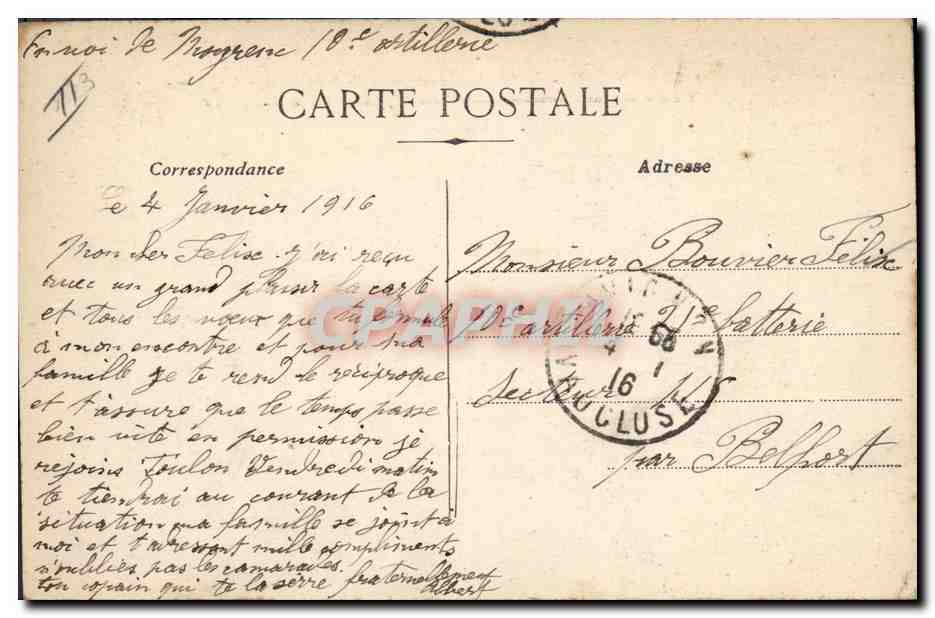 Envoi de Moyrenc 10e artillerie
113
CARTE POSTALE
Correspondance
Adresse
Le 4 Janvier 1916
Mon cher Felix j'ai reçu
avec un grand plaisir la carte
et tous les vœux que tu formule
à mon encontre et pour ma
famille je te rend le réciproque
et t'assure que le temps passe
bien vite en permission je
rejoins Toulon Vendredi matin
te tiendrai au courant de la
situation ma famille se joint à
moi et t'adressent mille compliments
n'oublies pas les camarades.
ton copain qui te la serre fraternellement
Albert
Monsieur Bouvier Félix
10e artillerie 21e batterie
Secteur 115
par Belfort
AVIGNON
4 1
16
VAUCLUSE
CPAPHIL